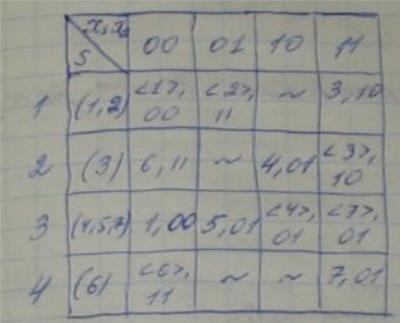 x₁x₂ S 00 01 10 11
1 (1,2) <1>, 00 <2>, 11 ~ 3,10
2 (3) 6,11 ~ 4,01 <3>, 10
3 (4,5,7) 1,00 5,01 <4>, 01 <7>, 01
4 (6) <6>, 11 ~ ~ 7,01